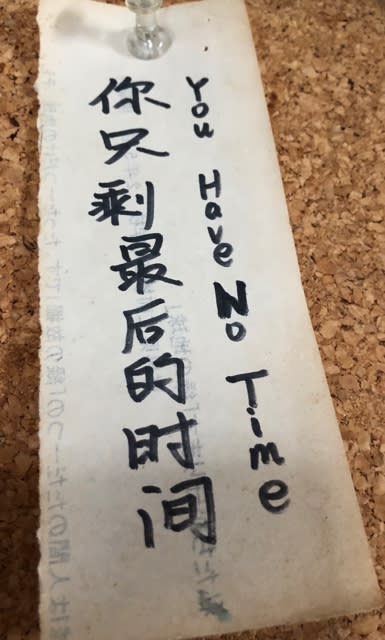 You Have No Time
你只剩最后的时间